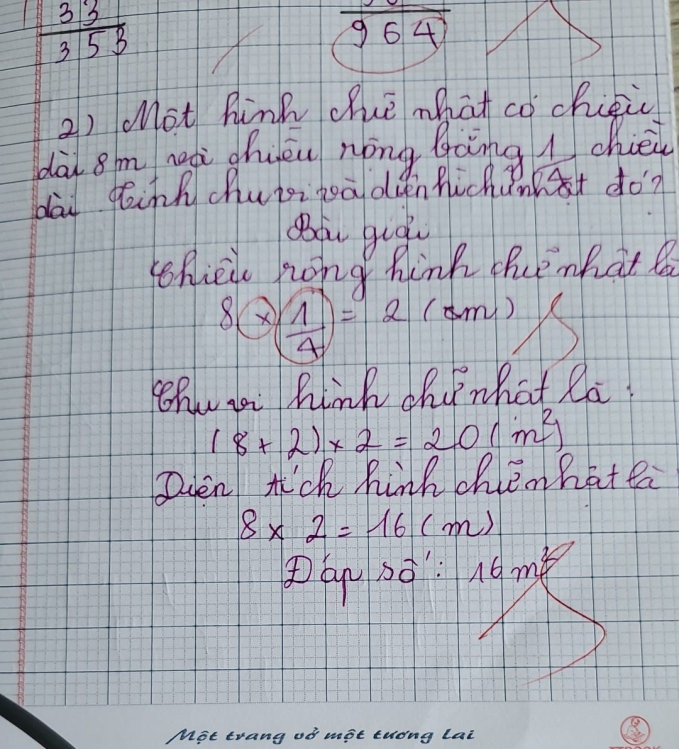 33
353
964
2) Một hình chữ nhật có chiều
dài 8m với chiều rộng bằng 1/4 chiều
dài tính chu vi và diện tích hình chữ nhật đó?
Bài giải
Chiều rộng hình chữ nhật là
8 × 1/4 = 2 (m)
Chu vi hình chữ nhật là :
(8 + 2) × 2 = 20 (m²)
Diện tích hình chữ nhật là
8 × 2 = 16 (m)
Đáp số : 16 m²
Một trang vở một tương lai